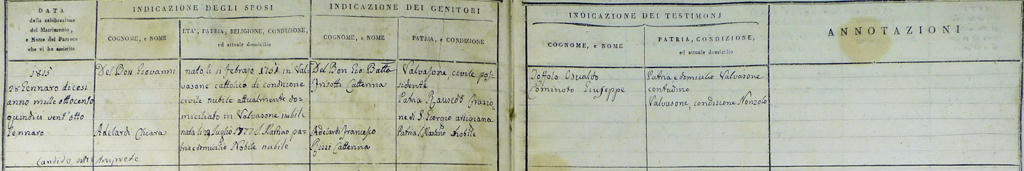 DATA
della celebrazione
del Matrimonio,
e Nome del Parroco
che vi ha assistito
INDICAZIONE DEGLI SPOSI
COGNOME, e NOME
ETA', PATRIA, RELIGIONE, CONDIZIONE,
ed attuale domicilio
INDICAZIONE DEI GENITORI
COGNOME, e NOME
PATRIA, e CONDIZIONE
INDICAZIONE DEI TESTIMONJ
COGNOME, e NOME
PATRIA, CONDIZIONE,
ed attuale domicilio
ANNOTAZIONI
1815
28 Gennaro dicesi
anno mille ottocento
quindici vent'otto
Gennaro
Candido
Del Bon Giovanni
Adelardi Chiara
nato li 11 febrajo in Val
vasone cattolico di condizione
civile nubile attualmente do
miciliato in Valvasone nubile
nata li luglio S. Martino pa
tria e domicilio Nobile nubile
Del Bon Gio Batta
Catterina
Adelardi Francesco
Catterina
Valvasone, civile pos
sidente
Patria
ne di S. Giorgio artigiana
Patria S. Martino Nobile
Osvaldo
Giuseppe
Patria e domicilio Valvasone
contadino
Valvasone, condizione Nonzolo